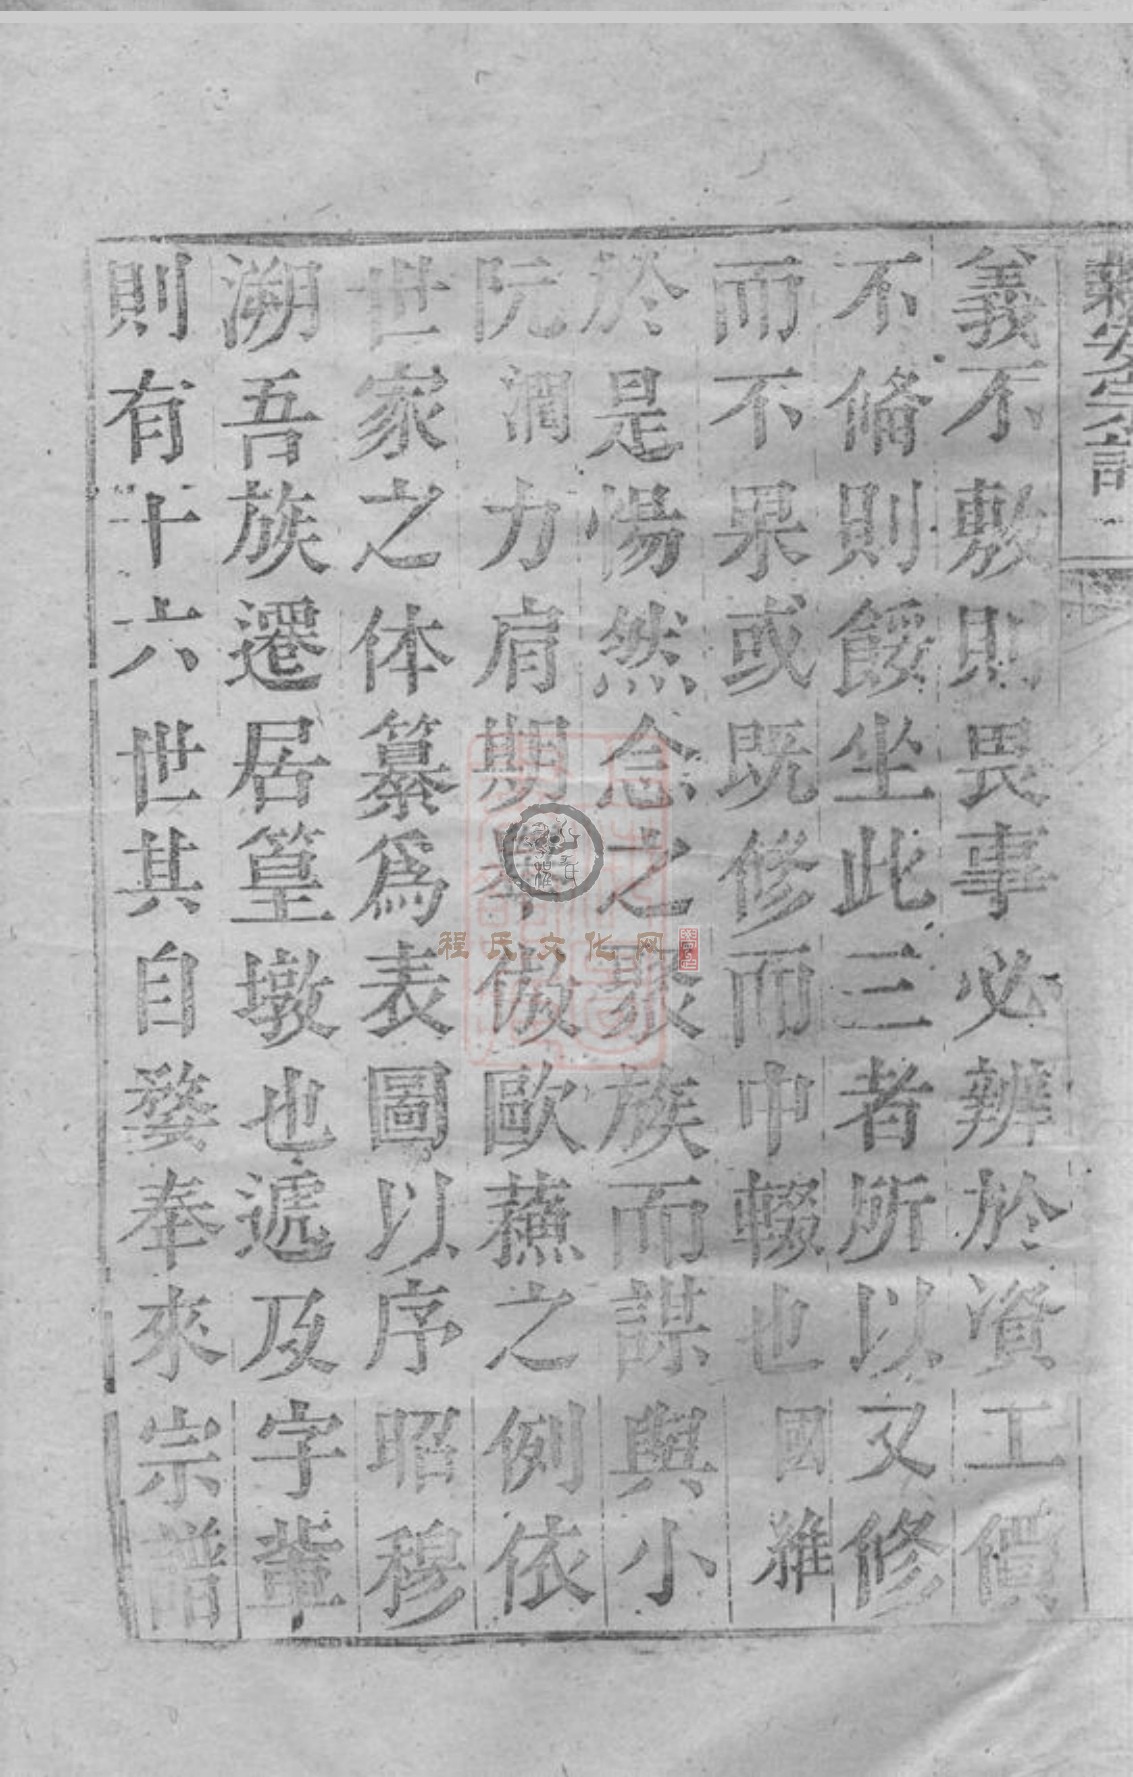 義不敷則畏事必辨於資工價
不脩則餒坐此三者所以又修
而不果或既修而中輟也國雅
於是惕然念之聚族而謀與小
阮潤力肩期舉倣歐蘇之例依
世家之体纂爲表圖以序昭穆
溯吾族遷居篁墩也遞及字輩
則有十六世其自婺奉來宗譜
程氏文化网